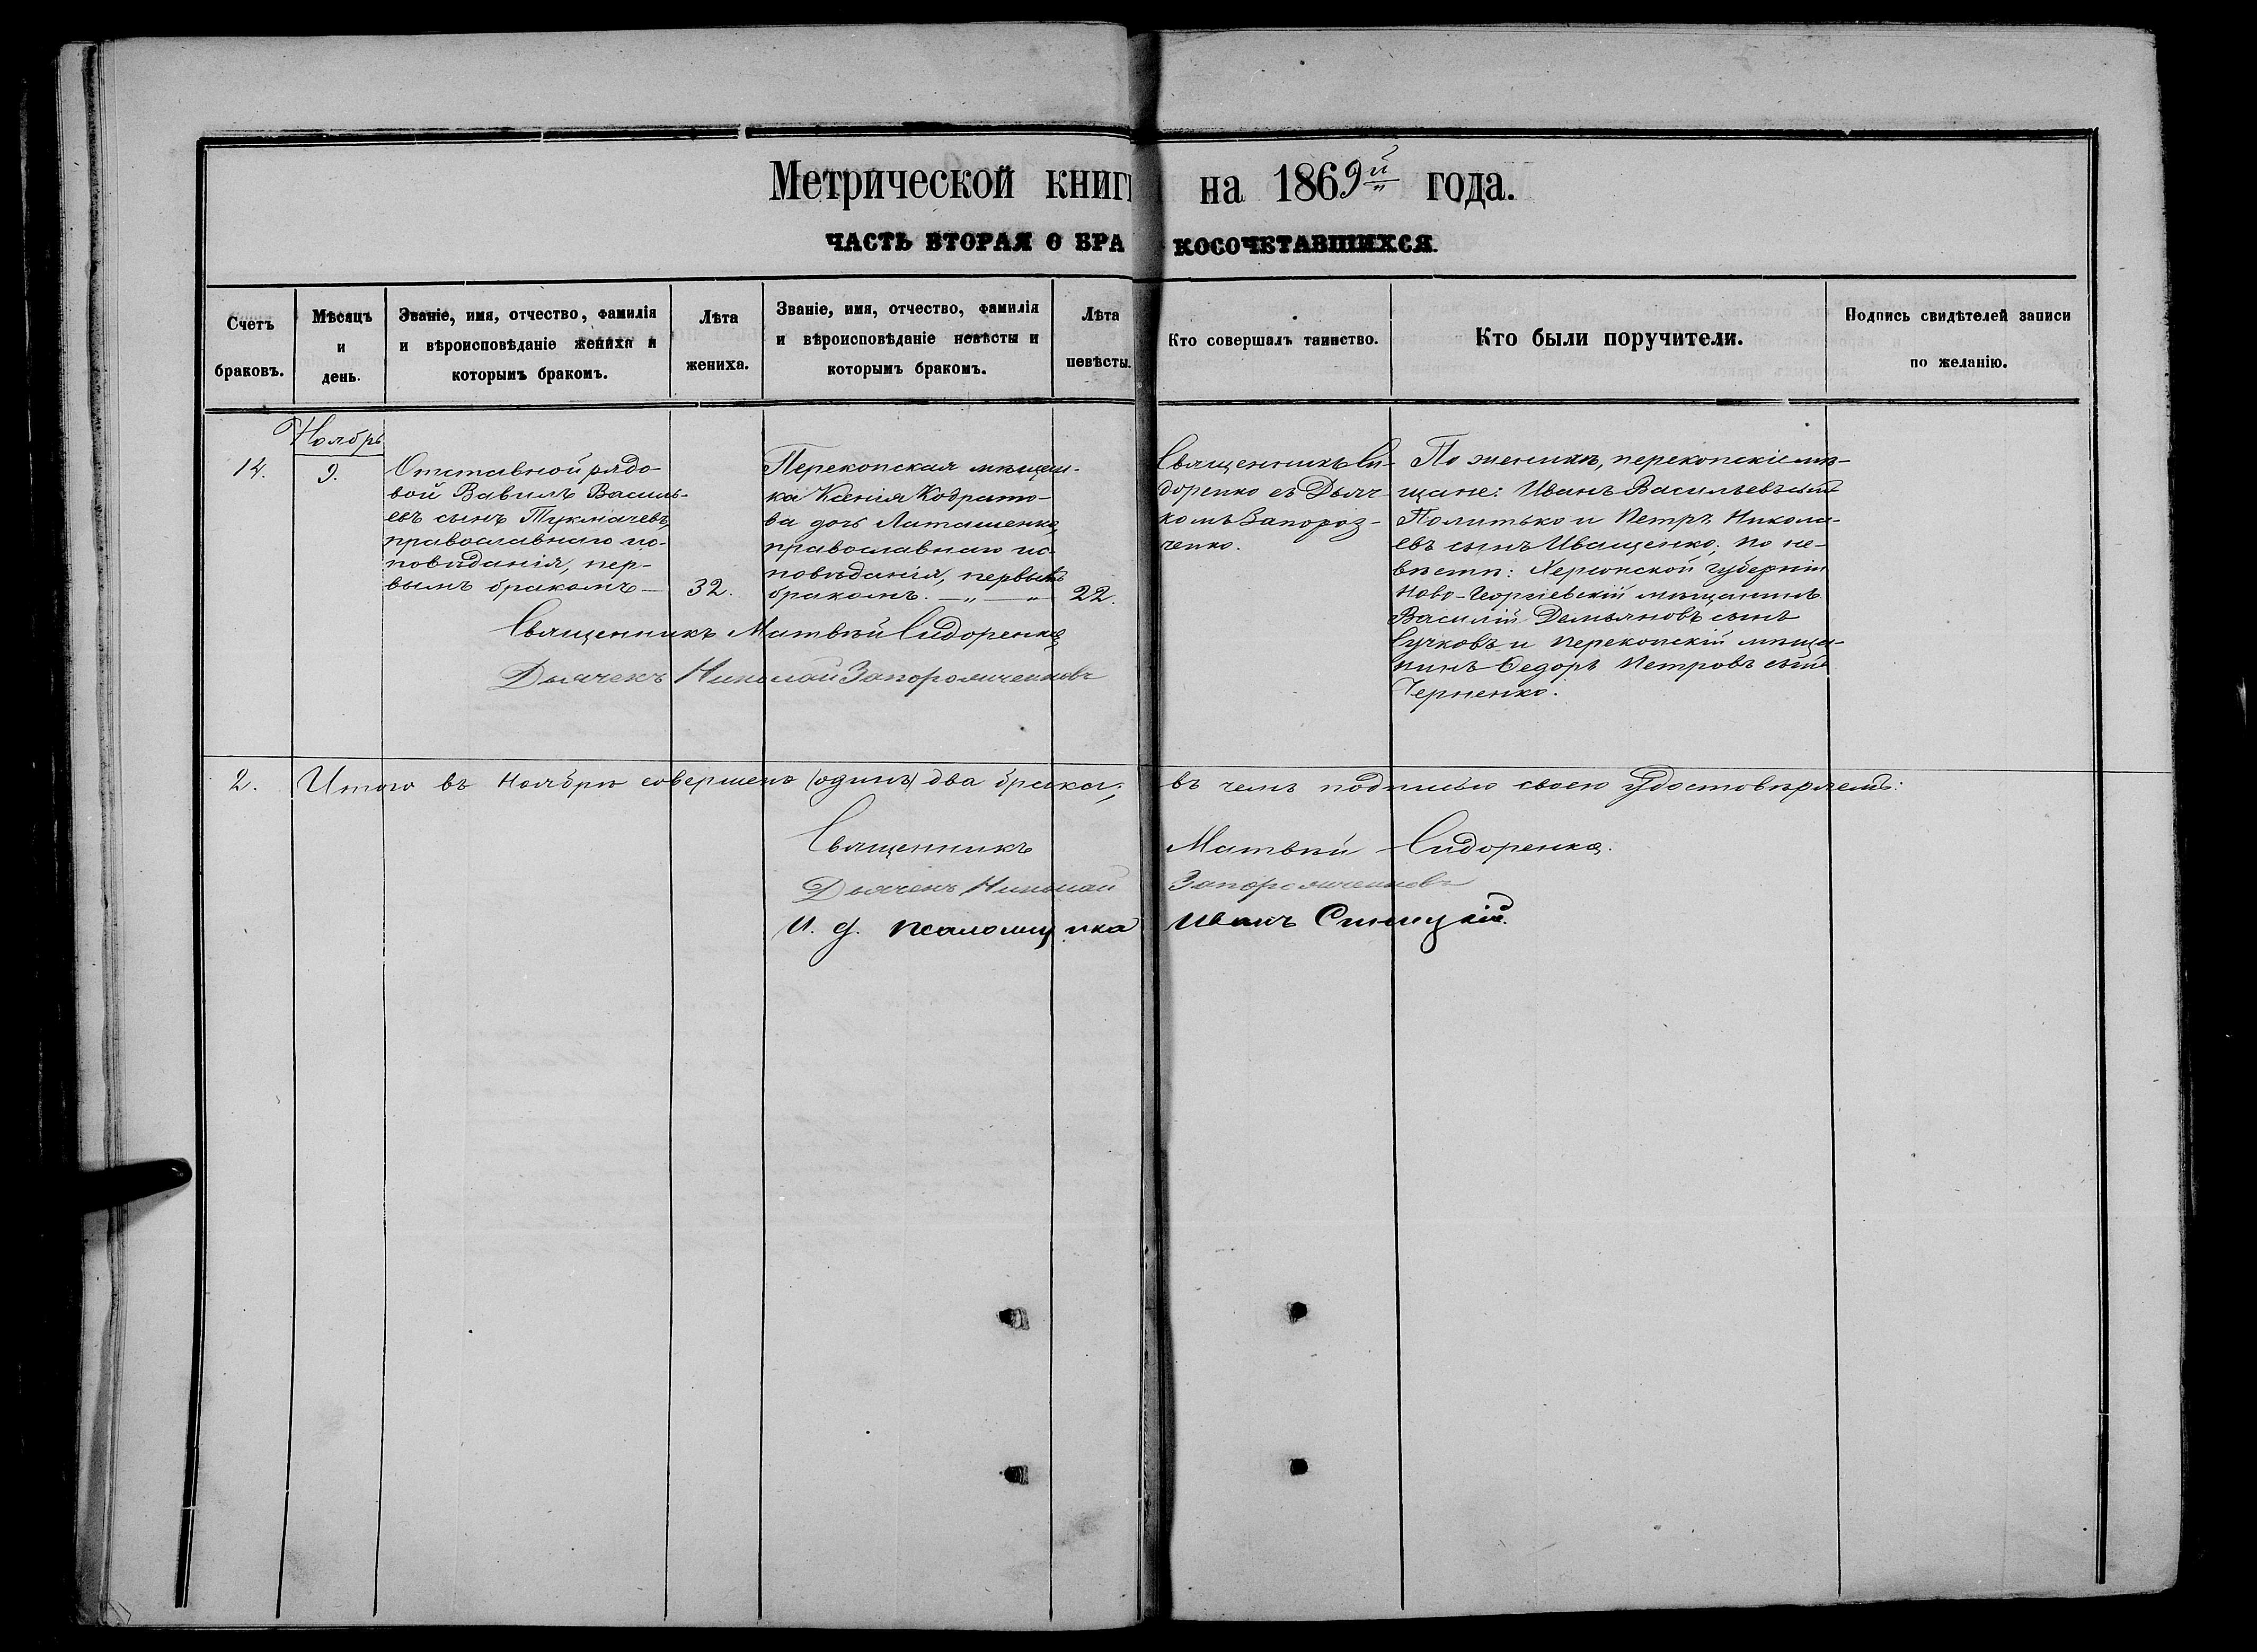 Метрической книги на 1869й года.
ЧАСТЬ ВТОРАЯ О БРАКОСОЧЕТАВШИХСЯ.
Счетъ
браковъ.
Мѣсяцъ
и
день.
Званіе, имя, отчество, фамилія
и вѣроисповѣданіе жениха и
которымъ бракомъ.
Лѣта
жениха.
Званіе, имя, отчество, фамилія
и вѣроисповѣданіе невѣсты и
которымъ бракомъ.
Лѣта
невѣсты.
Кто совершалъ таинство.
Кто были поручители.
Подпись свидѣтелей записи
по желанію.
Ноябрь
14.
9.
Отставной рядо-
вой Вавилъ Василь-
евъ сынъ Тукмачевъ,
православнаго ис-
повѣданія, пер-
вымъ бракомъ —
32.
Перекопская мѣщан-
ка Ксенія Кодрато-
ва дочь Латашенко,
православнаго ис-
повѣданія, первымъ
бракомъ. — „ — „
22.
Священникъ Си-
доренко съ Дьяч-
комъ Запороз-
ченко.
По женихѣ, перекопскіе мѣ-
щане: Иванъ Васильевъ сынъ
Политько и Петръ Никола-
евъ сынъ Иващенко; по не-
вѣстѣ: Херсонской губерніи
Ново-Георгіевскій мѣщанинъ
Василій Демьяновъ сынъ
Сучковъ и перекопскій мѣща-
нинъ Ѳедоръ Петровъ сынъ
Черненко.
Священникъ Матвѣй Сидоренко
Дьячекъ Николай Запорожченковъ
2. Итого въ Ноябрѣ совершено (одинъ) два брака; въ чемъ подписью своею удостовѣряемъ:
Священникъ Матвѣй Сидоренко.
Дьячекъ Николай Запорожченковъ
И. д. псаломщика Иванъ Синицкій.